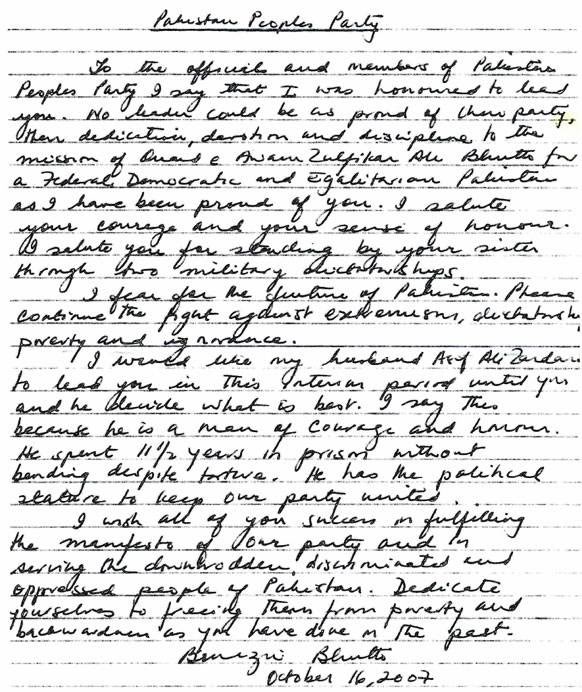 Pakistan Peoples Party
To the officials and members of Pakistan
Peoples Party I say that I was honoured to lead
you. No leader could be as proud of their party,
their dedication, devotion and discipline to the
mission of Quaid e Awam Zulfikar Ali Bhutto for
a Federal Democratic and Egalitarian Pakistan
as I have been proud of you. I salute
your courage and your sense of honour.
I salute you for standing by your sister
through two military dictatorships.
I fear for the future of Pakistan. Please
continue the fight against extremism, dictatorshi
poverty and ignorance.
I would like my husband Asif Ali Zardari
to lead you in this interim period until you
and he decide what is best. I say this
because he is a man of courage and honour.
He spent 11 1/2 years in prison without
bending despite torture. He has the political
stature to keep our party united.
I wish all of you success in fulfilling
the manifesto of our party and in
serving the downtrodden, discriminated and
oppressed people of Pakistan. Dedicate
yourselves to freeing them from poverty and
backwardness as you have done in the past.
Benazir Bhutto
October 16, 2007